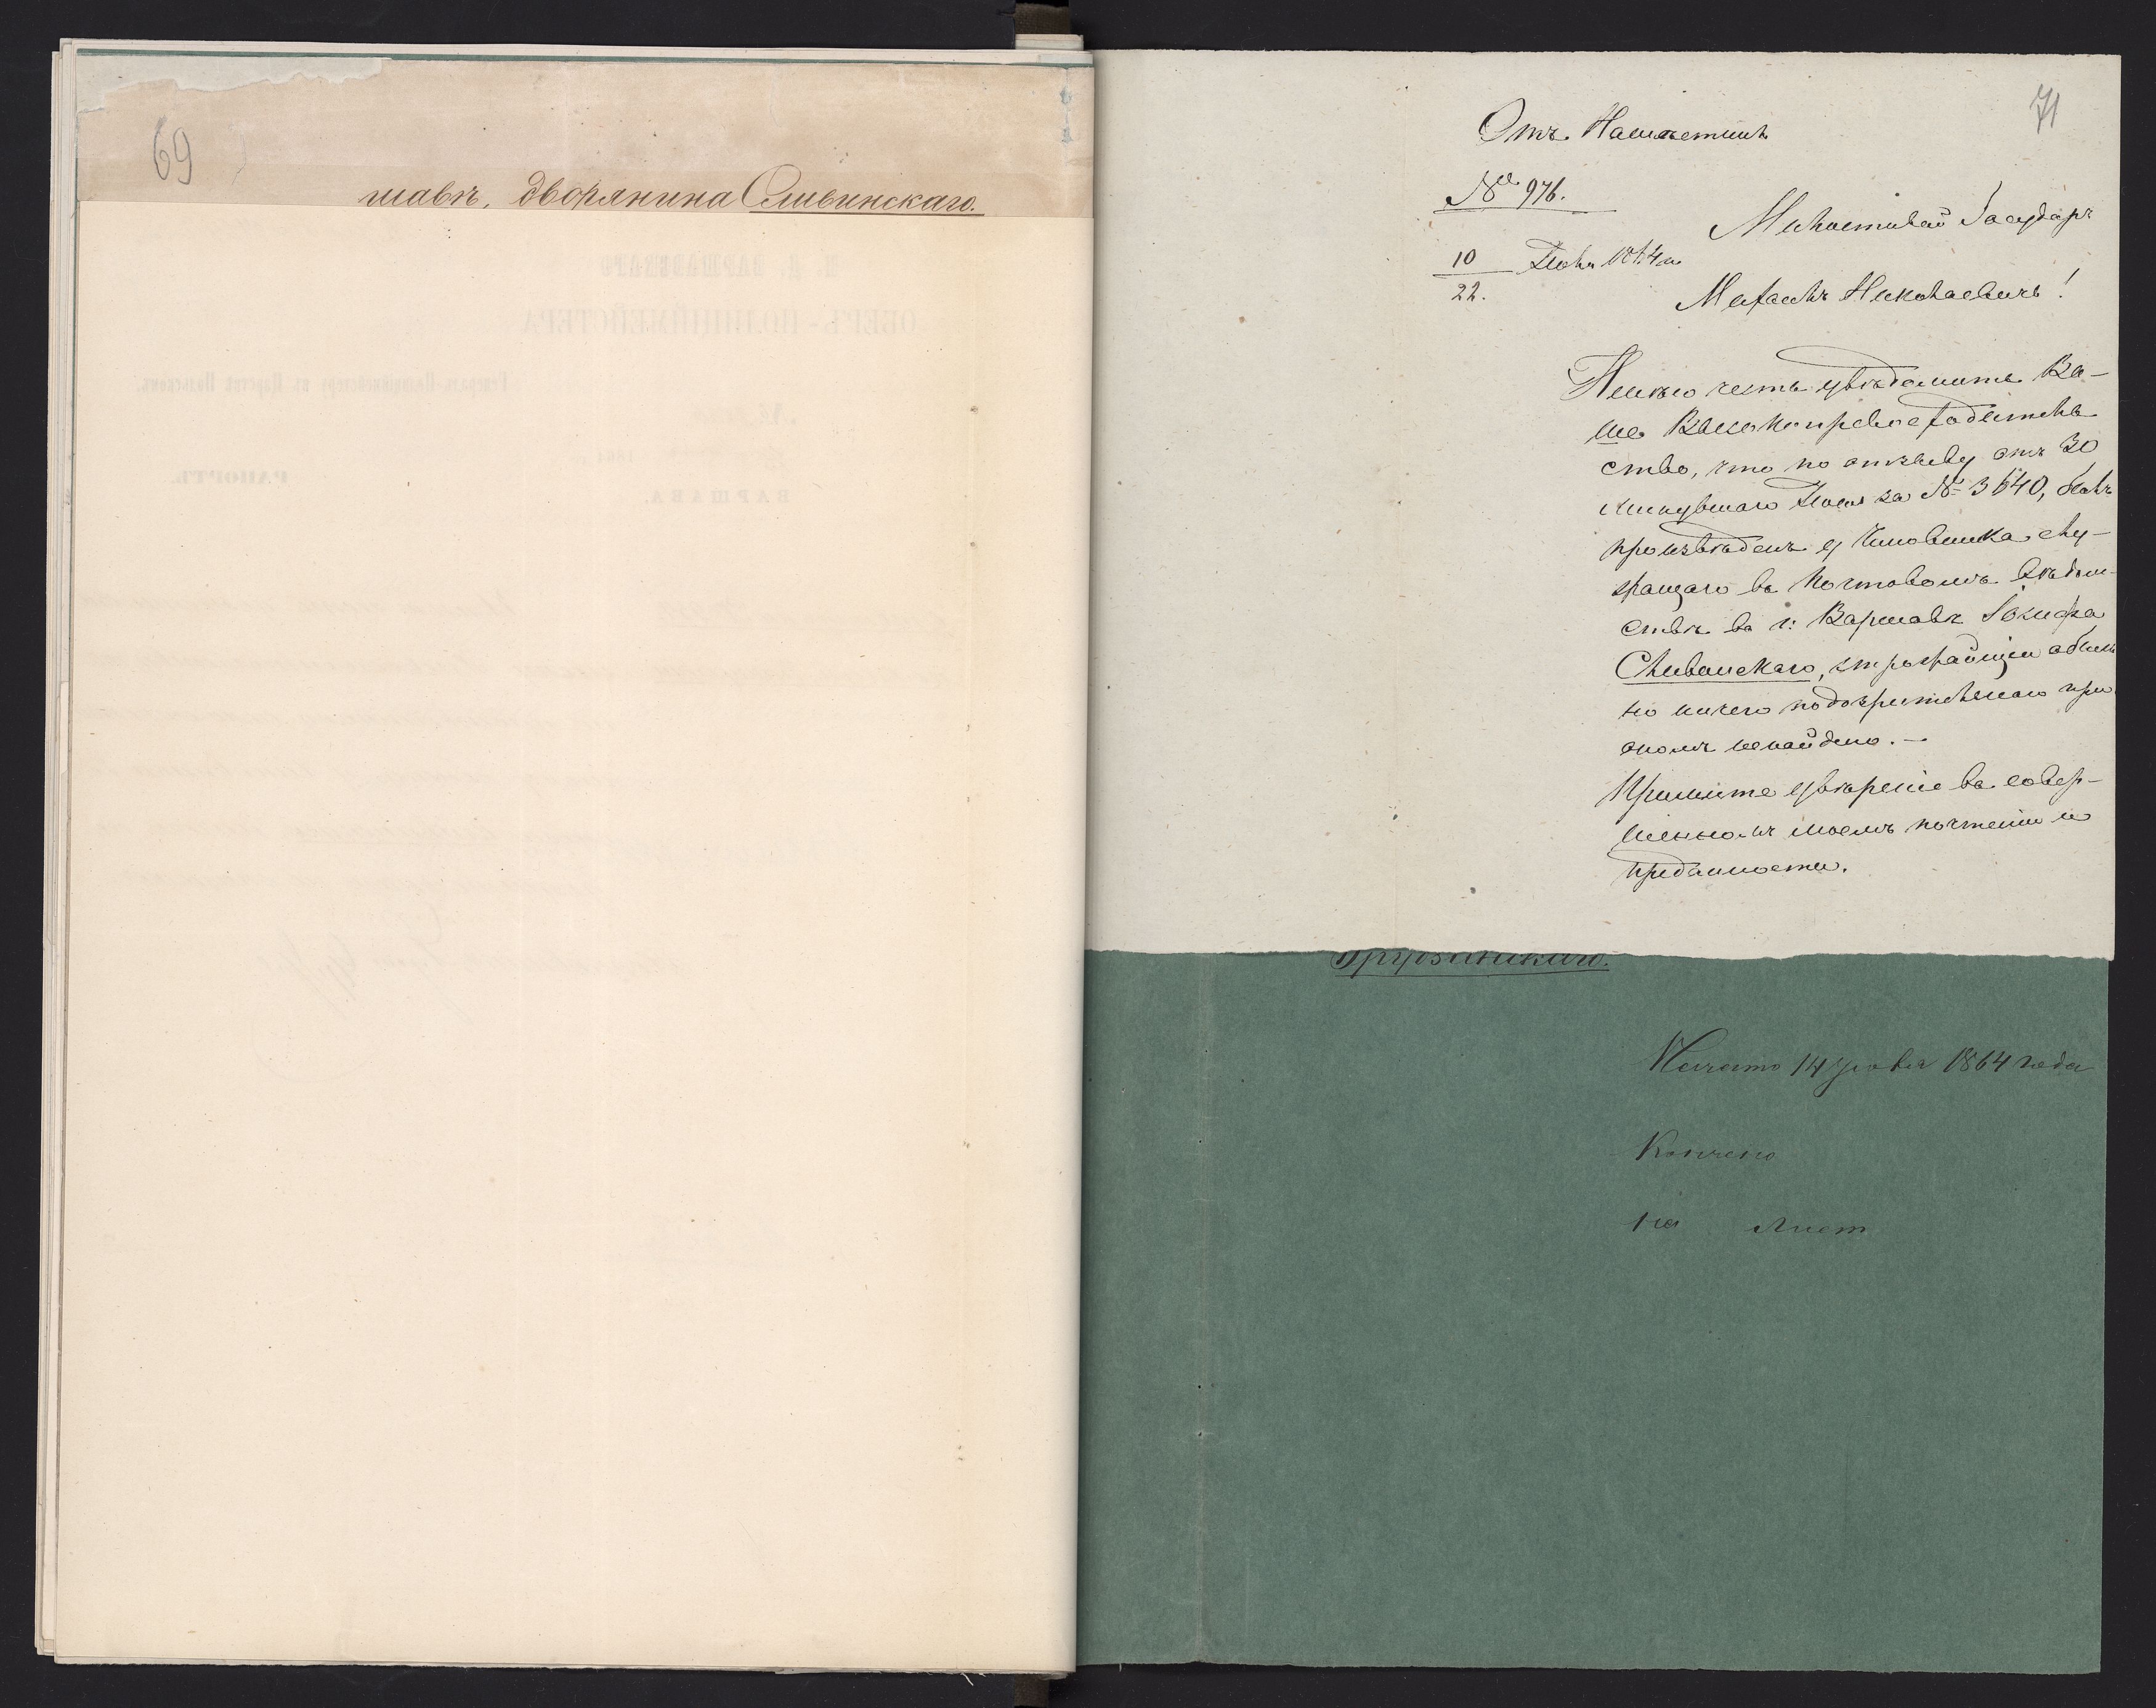 69
шавѣ, дворянина Сливинскаго.
71
Отъ Намѣстник
№ 976.
10 Іюля 1864 г.
22.
Милостивый Государь
Михаилъ Николаевичъ!
Имѣю честь увѣдомить Ва-
ше Высокопревосходитель
ство, что по отзыву отъ 30
минувшаго Іюня за № 3640, былъ
произведенъ у Чиновника слу-
жащаго въ Почтовомъ вѣдом-
ствѣ въ г: Варшавѣ Іозифа
Сливинскаго, строжайшій обыскъ
но ничего подозрительнаго при
ономъ ненайдено.—
Примите увѣреніе въ совер-
шенномъ моемъ почтеніи и
преданности.
Начато 14 Іюля 1864 года
Кончено
на Лист